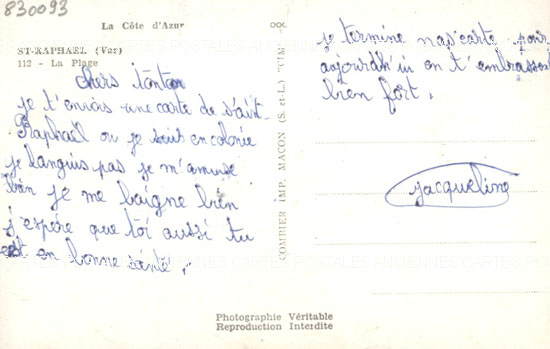 830093
La Côte d'Azur
ST-RAPHAËL (Var)
112 - La Plage
chers tonton
je t'envois une carte de saint-
Raphaël ou je suis en colonie
je languis pas je m'amuse
bien je me baigne bien
j'espère que toi aussi tu
est en bonne santé.
COMBIER IMP. MACON (S.-et-L.) "CI
je termine mas carte pour
aujourdh'ui en t'embrassent
bien fort.
jacqueline
CARTES POSTALES ANCIENNES CARTES POSTALES
Photographie Véritable
Reproduction Interdite